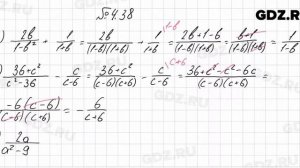 № 438
GDZ.RU
1-b
) 2b/(1-b²) + 1/(1+b) = 2b/((1-b)(1+b)) + 1/(1+b) = (2b+1-b)/((1-b)(1+b)) = (b+1)/((1-b)(1+b)) = 1/(1-b)
c+6
) (36+c²)/(c²-36) - c/(c-6) = (36+c²)/((c-6)(c+6)) - c/(c-6) = (36+c²-c²-6c)/((c-6)(c+6)) =
-6(c-6)/((c-6)(c+6)) = - 6/(c+6)
2a/(a²-9)
GDZ.RU